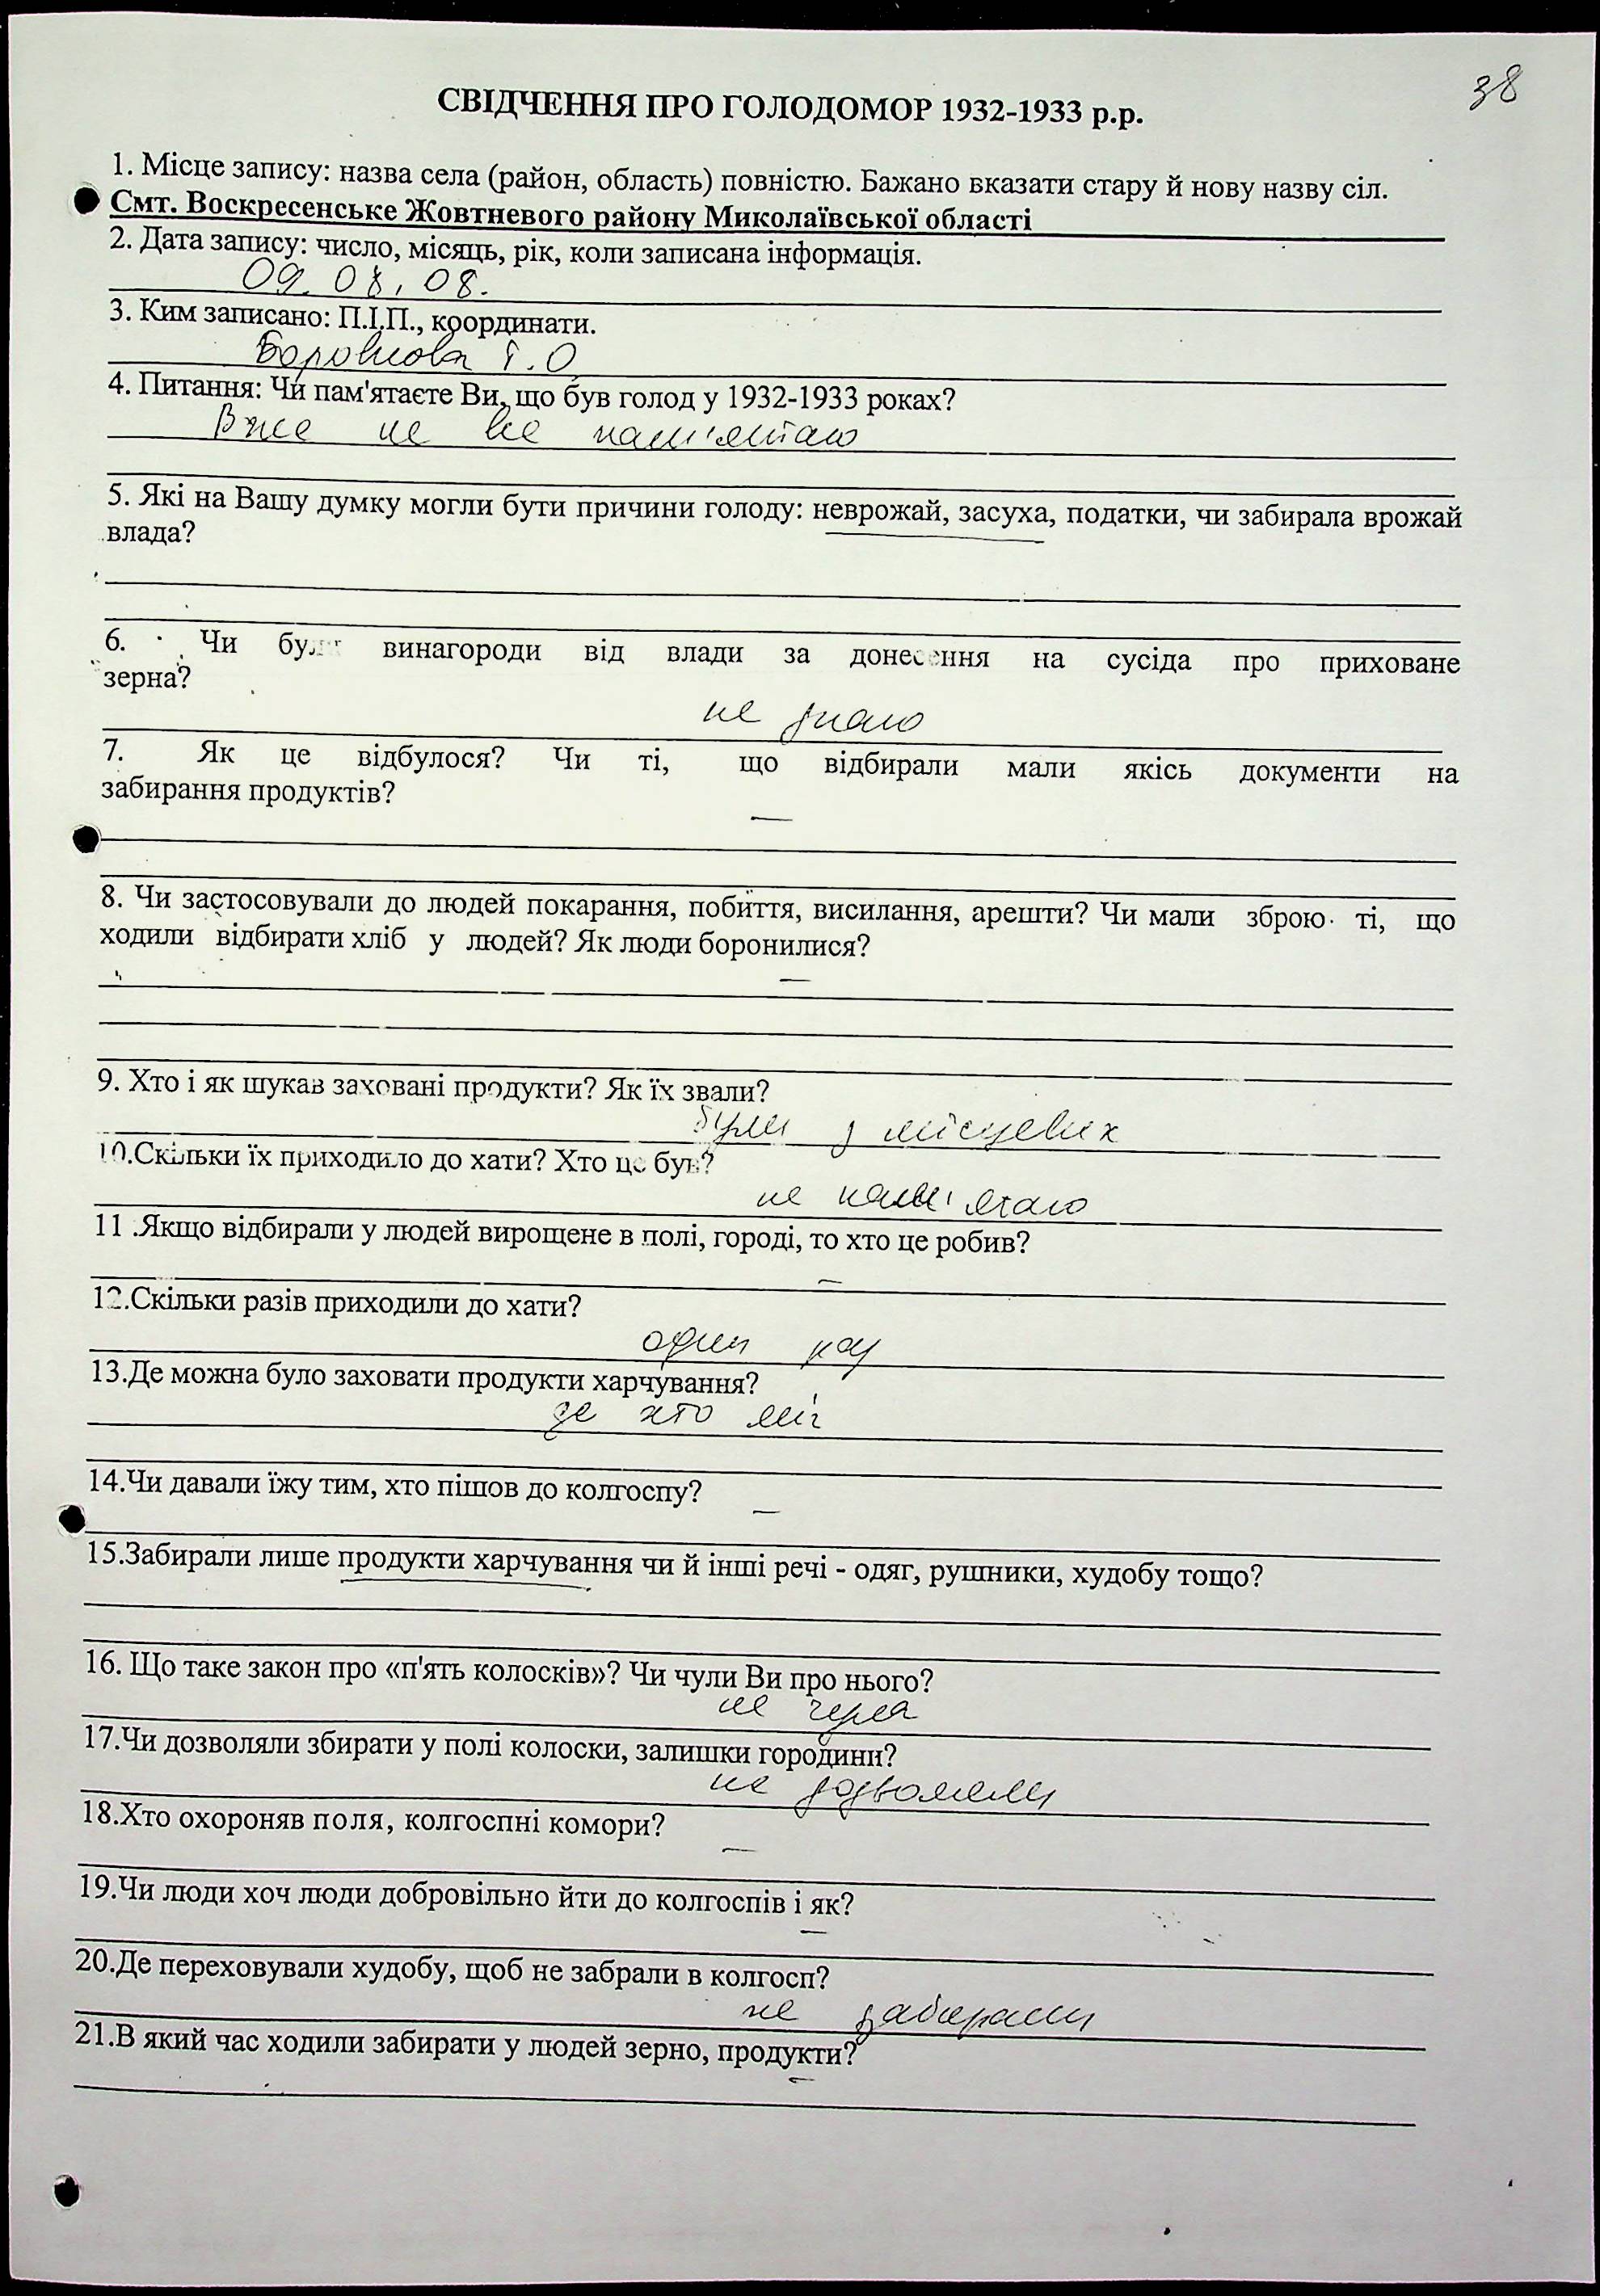 38
СВІДЧЕННЯ ПРО ГОЛОДОМОР 1932-1933 р.р.
1. Місце запису: назва села (район, область) повністю. Бажано вказати стару й нову назву сіл.
Смт. Воскресенське Жовтневого району Миколаївської області
2. Дата запису: число, місяць, рік, коли записана інформація.
09. 08. 08.
3. Ким записано: П.І.П., координати.
Боровкова Т. О
4. Питання: Чи пам'ятаєте Ви, що був голод у 1932-1933 роках?
Вже не все пам'ятаю
5. Які на Вашу думку могли бути причини голоду: неврожай, засуха, податки, чи забирала врожай
влада?
6. Чи були винагороди від влади за донесення на сусіда про приховане
зерна?
не знаю
7. Як це відбулося? Чи ті, що відбирали мали якісь документи на
забирання продуктів?
—
8. Чи застосовували до людей покарання, побиття, висилання, арешти? Чи мали зброю ті, що
ходили відбирати хліб у людей? Як люди боронилися?
—
9. Хто і як шукав заховані продукти? Як їх звали?
були з місцевих
10.Скільки їх приходило до хати? Хто це був?
не пам'ятаю
11 .Якщо відбирали у людей вирощене в полі, городі, то хто це робив?
—
12.Скільки разів приходили до хати?
один раз
13.Де можна було заховати продукти харчування?
де хто міг
14.Чи давали їжу тим, хто пішов до колгоспу?
—
15.Забирали лише продукти харчування чи й інші речі - одяг, рушники, худобу тощо?
16. Що таке закон про «п'ять колосків»? Чи чули Ви про нього?
не чула
17.Чи дозволяли збирати у полі колоски, залишки городини?
не дозволяли
18.Хто охороняв поля, колгоспні комори?
—
19.Чи люди хоч люди добровільно йти до колгоспів і як?
—
20.Де переховували худобу, щоб не забрали в колгосп?
не забирали
21.В який час ходили забирати у людей зерно, продукти?
—